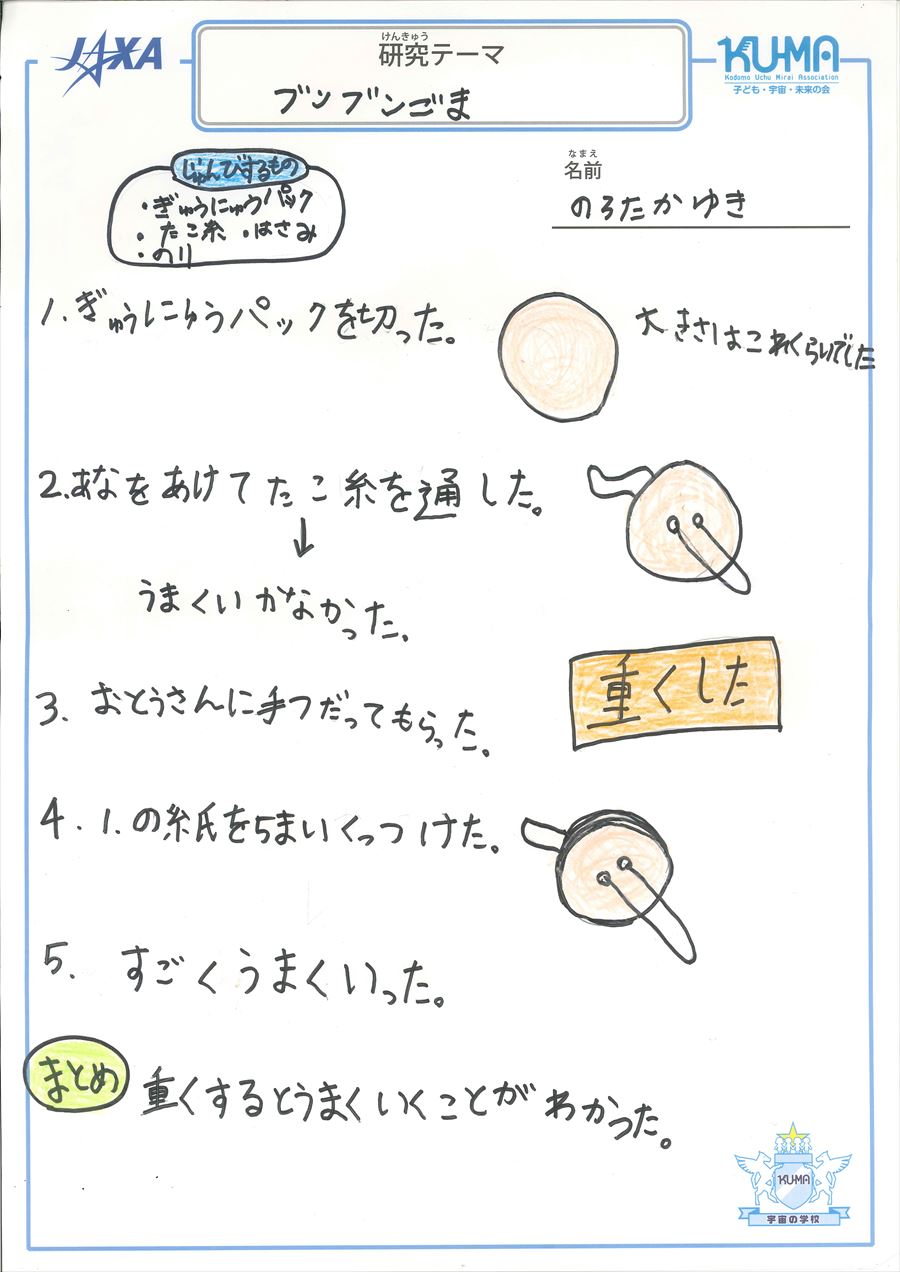 JAXA
けんきゅう
研究テーマ
ブンブンごま
KU-MA
Kodomo Uchu Mirai Association
子ども・宇宙・未来の会
なまえ
名前
のろたかゆき
じゅんびするもの
・ぎゅうにゅうパック
・たこ糸 ・はさみ
・のり
1.ぎゅうにゅうパックを切った。
大きさはこれくらいでした
2.あなをあけてたこ糸を通した。
↓
うまくいかなかった。
3.おとうさんに手つだってもらった。
重くした
4.1.の紙を5まいくっつけた。
5.すごくうまくいった。
まとめ
重くするとうまくいくことがわかった。
KU-MA
宇宙の学校